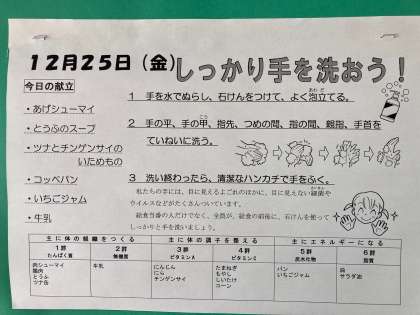 12月25日（金）
しっかり手を洗おう！
今日の献立
・あげシューマイ
・とうふのスープ
・ツナとチンゲンサイの
いためもの
・コッペパン
・いちごジャム
・牛乳
1 手を水でぬらし、石けんをつけて、よく泡立てる。
2 手の平、手の甲、指先、つめの間、指の間、親指、手首を
ていねいに洗う。
3 洗い終わったら、清潔なハンカチで手をふく。
私たちの手には、目に見えるよごれのほかに、目に見えない細菌や
ウイルスなどがたくさんついています。
給食当番の人だけでなく、全員が、給食の前後に、石けんを使って
しっかりと手を洗いましょう。
主に体の組織をつくる
主に体の調子を整える
主にエネルギーになる
1群 たんぱく質
2群 無機質
3群 ビタミンA
4群 ビタミンC
5群 炭水化物
6群 脂質
肉シューマイ
鶏肉
とうふ
ツナ缶
牛乳
にんじん
にら
チンゲンサイ
たまねぎ
もやし
しいたけ
コーン
パン
いちごジャム
油
サラダ油